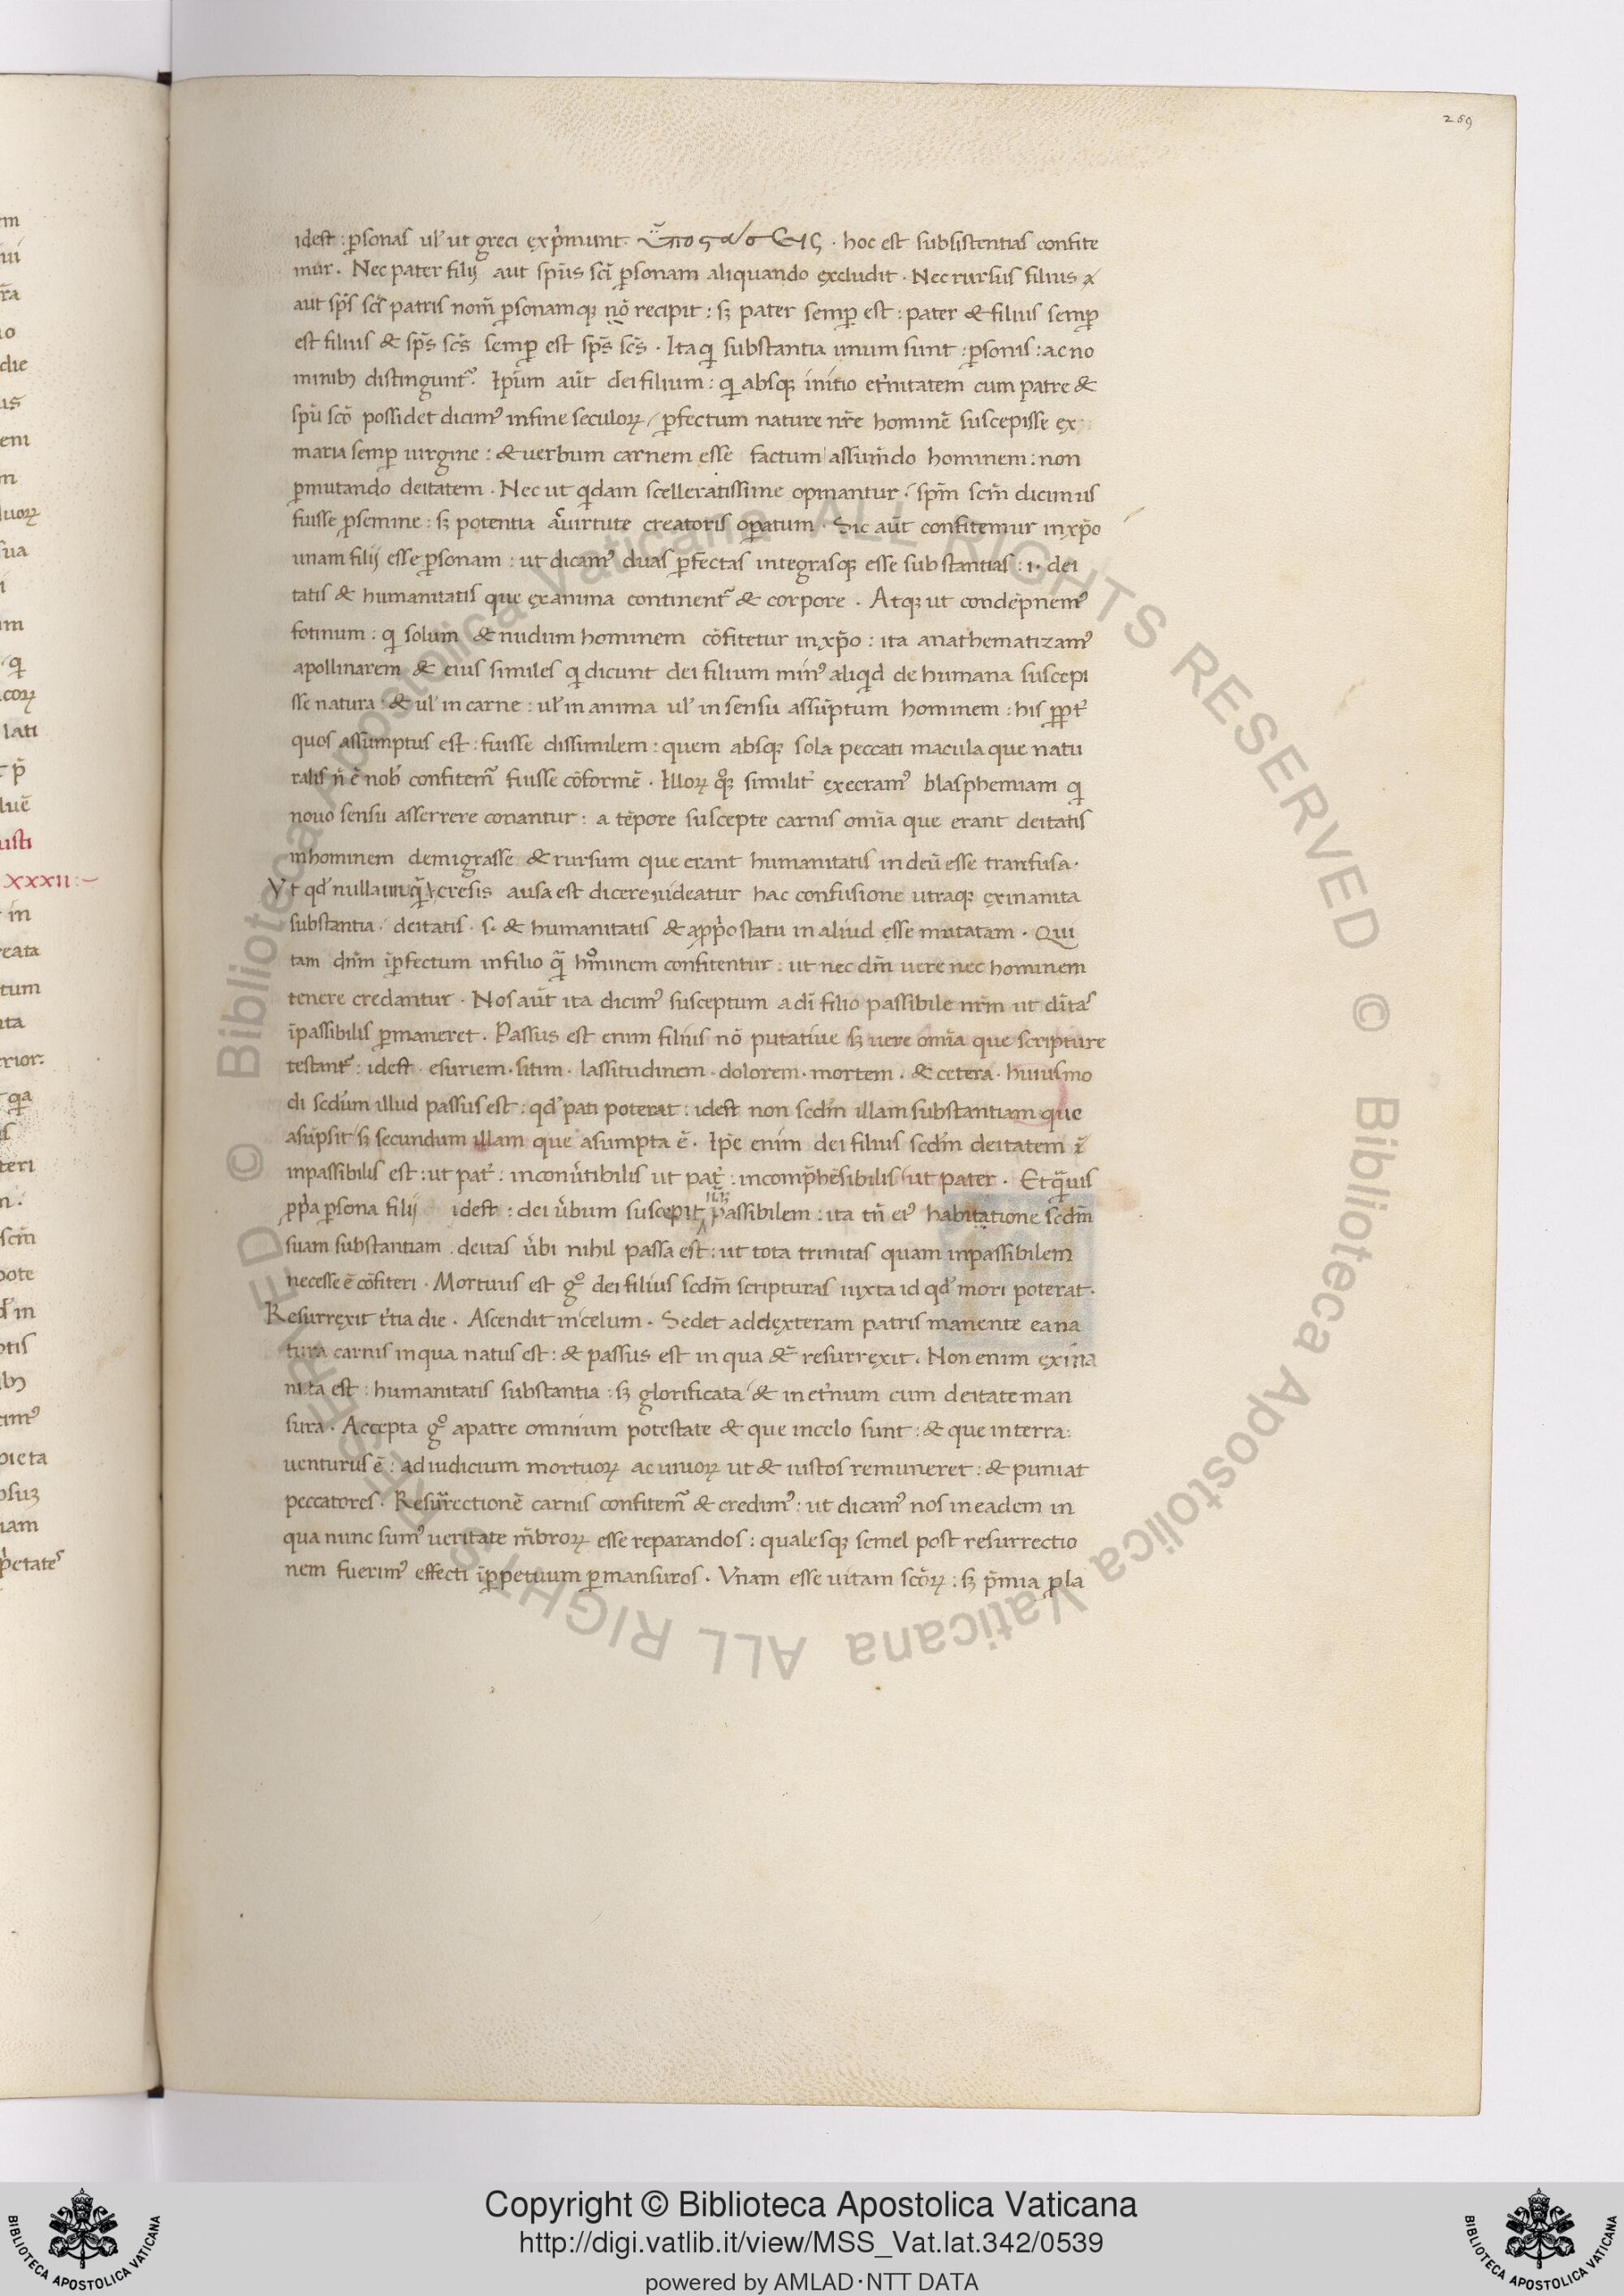 269
idest : ꝑsonas ul' ut greci exp̾munt · ὑποςάσεις · hoc est subsistentias confite
mur . Nec pater filij aut sp̄us sc̄i ꝑsonam aliquando excludit · Nec rursus filius
aut sp̄s sc̄s patris nom̄ ꝑsonamqꝫ nō recipit : sꝫ pater semꝑ est : pater & filius semꝑ
est filius & sp̄s sc̄s semꝑ est sp̄s sc̄s · Itaqꝫ substantia unum sunt : ꝑsonis : ac no
minibꝫ distingunt᷑ . Ip̄um aūt dei filium : q̇ absqꝫ initio et̾nitatem cum patre &
sp̄u sc̄o possidet dicimꝰ in fine seculoꝝ / ꝑfectum nature nr̄e hominē suscepisse ex
maria semꝑ uirgine : & uerbum carnem esse factum assum̄do hominem : non
ꝑmutando deitatem · Nec ut q̇dam scelleratissime opinantur : sp̄m sc̄m dicimus
fuisse ꝑ semine : sꝫ potentia a̾ uirtute creatoris oꝑatum · Sic aūt confitemur in xp̄o
unam filij esse ꝑsonam : ut dicamꝰ duas ꝑfectas integrasqꝫ esse substantias : i · dei
tatis & humanitatis que ex anima continent᷑ & corpore · Atqꝫ ut condēpnemꝰ
fotinum : q̇ solum & nudum hominem cōfitetur in xp̄o : ita anathematizamꝰ
apollinarem & eius similes q̇ dicunt dei filium minꝰ aliq̇d de humana suscepi
sse natura : & ul' in carne : ul' in anima ul' in sensu assūptum hominem : his ꝓpt̾
quos assumptus est : fuisse dissimilem : quem absqꝫ sola peccati macula que natu
ralis n̄ ē nob' confitem᷑ fuisse cōformē · Illoꝝ qꝫ similit̾ execramꝰ blasphemiam q̇
nouo sensu asserrere conantur : a tēpore suscepte carnis om̄ia que erant deitatis
in hominem demigrasse & rursum que erant humanitatis in deū esse tranfusa ·
Vt qd' nulla unq̄ ̾eresis ausa est dicere uideatur hac confusione utraqꝫ exinanita
substantia · deitatis · s · & humanitatis & a ꝓp̾o statu in aliud esse mutatam · Qui
tam dn̄m īꝑfectum in filio q̄ hoīnem confitentur : ut nec dm̄ uere nec hominem
tenere credantur · Nos aūt ita dicimꝰ susceptum a di filio passibile nr̄m ut dītas
īpassibilis ꝑmaneret · Passus est enim filius nō putatiue sꝫ uere om̄ia que scripture
testant᷑ : idest · esuriem · sitim · lassitudinem · dolorem · mortem · & cetera · huiusmo
di scd̄um illud passus est : qd' pati poterat : idest non scd̄m illam substantiam que
asūpsit / sꝫ secundum illam que asumpta ē · Ip̄e enim dei filius scd̄m deitatem ī
inpassibilis est : ut pat̾ : inconu̾tibilis ut pat̾ : incomp̾hēsibilis / ut pater · Et q̄uis
ꝓp̾a ꝑsona filij idest : dei u̾bum suscepit passibilem : ita tn̄ eiꝰ habitatione scd̄m
suam substantiam . deitas u̾bi nihil passa est : ut tota trinitas quam inpassibilem
necesse ē cōfiteri · Mortuus est g° dei filius scd̄m scripturas iuxta id qd' mori poterat ·
Resurrexit t̾tia die · Ascendit in celum · Sedet ad dexteram patris manente ea na
tura carnis in qua natus est : & passus est in qua & resurrexit · Non enim exina
nita est : humanitatis substantia : sꝫ glorificata / & in et̾num cum deitate man
sura · Accepta g° a patre omnium potestate & que in celo sunt : & que in terra :
uenturus ē : ad iudicium mortuoꝝ ac uiuoꝝ ut & iustos remuneret : & puniat
peccatores · Resurrectionē carnis confitem᷑ & credimꝰ : ut dicamꝰ nos in eadem in
qua nunc sumꝰ ueritate mēbroꝝ esse reparandos : qualesqꝫ semel post resurrectio
nem fuerimꝰ effecti ī ꝑpetuum ꝑmansuros · Vnam esse uitam sc̄oꝝ : sꝫ p̄mia ꝓ la
XXXII
Copyright © Biblioteca Apostolica Vaticana
http://digi.vatlib.it/view/MSS_Vat.lat.342/0539
powered by AMLAD·NTT DATA
BIBLIOTECA APOSTOLICA VATICANA
BIBLIOTECA APOSTOLICA VATICANA
© Biblioteca Apostolica Vaticana ALL RIGHTS RESERVED © Biblioteca Apostolica Vaticana ALL RIGHTS RESERVED